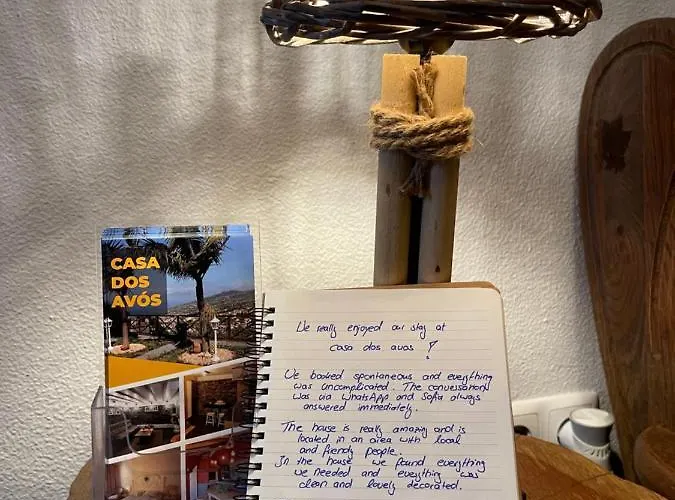 CASA
DOS
AVÓS
We really enjoyed our stay at
casa dos avos !
We booked spontaneous and everything
was uncomplicated. The conversation
was via WhatsApp and Sofia always
answered immediately.
The house is really amazing and is
located in an area with local
and friendly people.
In the house we found everything
we needed and everything was
clean and lovely decorated.